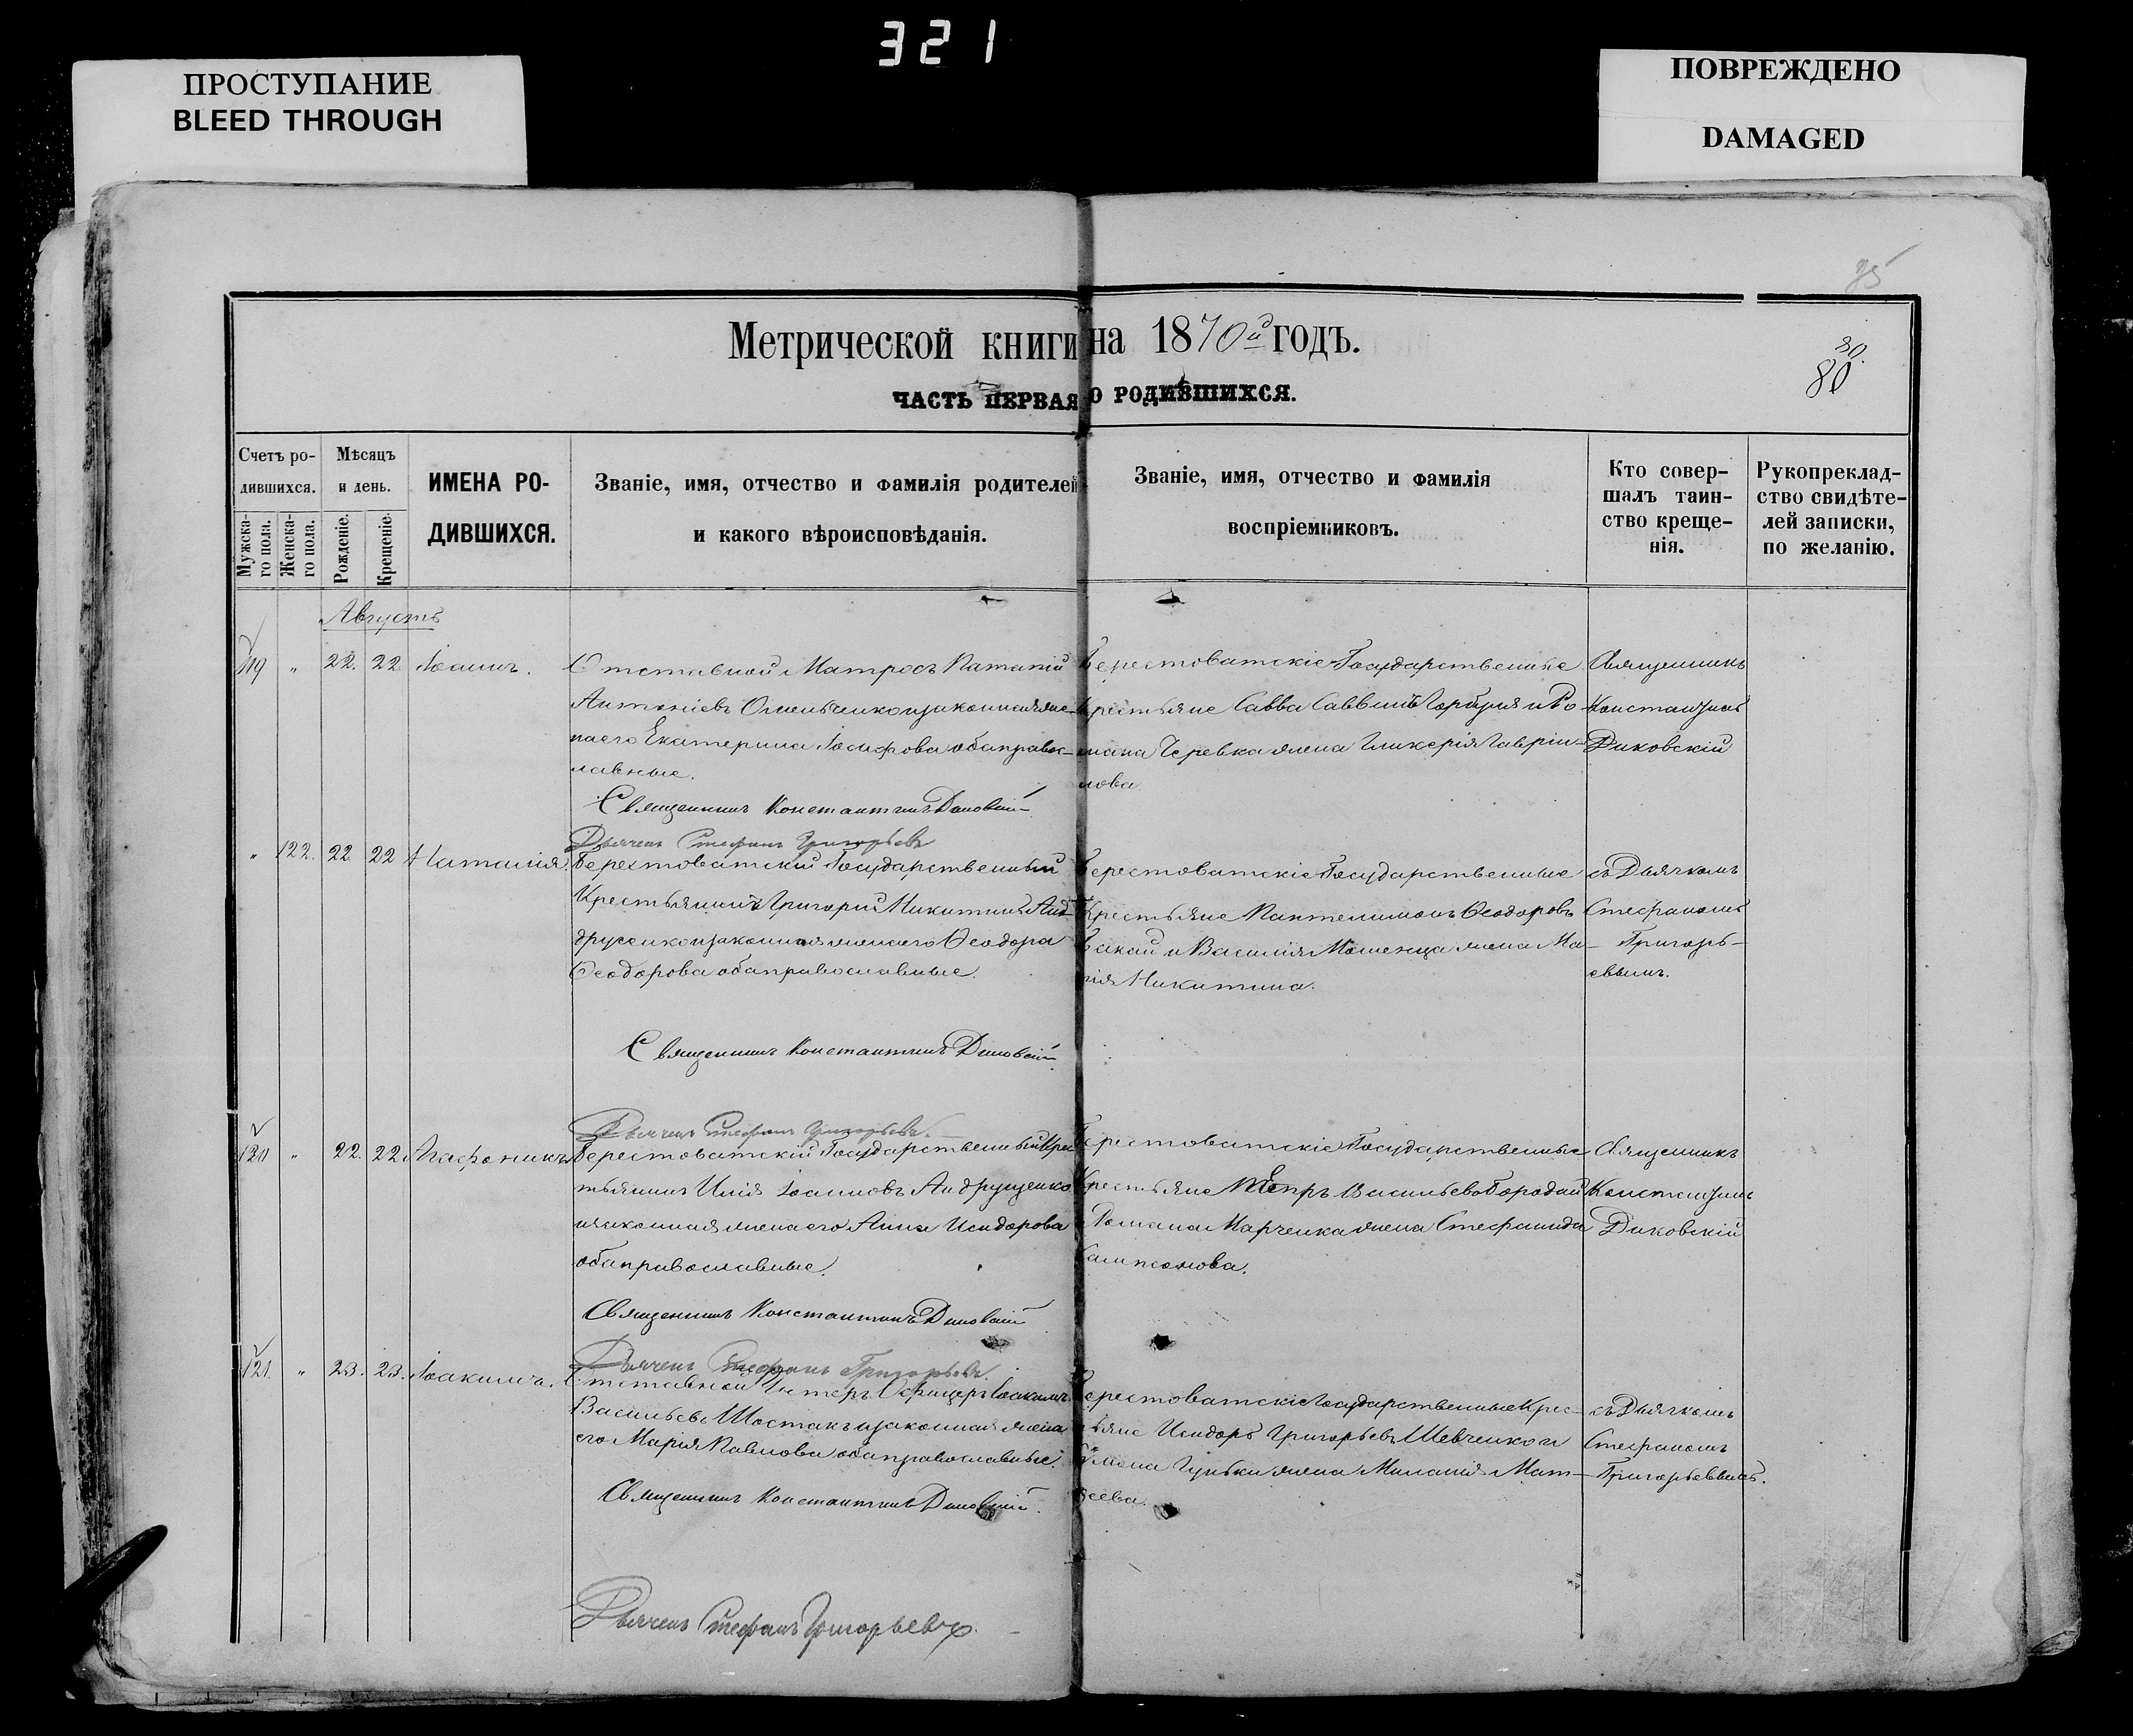 321
ПРОСТУПАНИЕ
BLEED THROUGH
ПОВРЕЖДЕНО
DAMAGED
75
Метрической книги на 1870й годъ.
80.
80
ЧАСТЬ ПЕРВАЯ О РОДИВШИХСЯ.
Счетъ родившихся.
Мужскаго пола.
Женскаго пола.
Мѣсяцъ и день.
Рожденіе.
Крещеніе.
ИМЕНА РОДИВШИХСЯ.
Званіе, имя, отчество и фамилія родителей
и какого вѣроисповѣданія.
Званіе, имя, отчество и фамилія
воспріемниковъ.
Кто совершалъ таинство крещенія.
Рукоприкладство свидѣтелей записки, по желанію.
Августъ
119 " 22. 22 Іоаннъ.
Отставной Матросъ Патапій
Антоніевъ Омельченко и законная же-
на его Екатерина Іосифова оба правос-
лавные.
Берестоватскіе Государственные
Крестьяне Савва Саввинъ Горбуля и Ро-
мана Черевка жена Гликерія Гаврии-
лова.
Священникъ
Константинъ
Диковскій
Священникъ Константинъ Диковскій
Дьячекъ Стефанъ Григорьевъ
" 122. 22. 22 Наталія.
Берестоватскій Государственный
Крестьянинъ Григорій Никитинъ Анд-
друсенко и законная жена его Ѳеодора
Ѳеодорова оба православные.
Берестоватскіе Государственные
Крестьяне Пантелимонъ Ѳеодоровъ
Бакай и Василія Мошенца жена Ма-
рія Никитина.
съ Дьячкомъ
Стефаномъ
Григорь-
евымъ.
Священникъ Константинъ Диковскій
Дьячекъ Стефанъ Григорьевъ.
120 " 22. 22 Агафоникъ
Берестоватскій Государственный Крес
тьянинъ Илія Іоанновъ Андрущенко
и законная жена его Анна Исидорова
оба православные.
Берестоватскіе Государственные
Крестьяне Петръ Васильевъ Бородай
Романа Марченка жена Стефанида
Сампсонова.
Священникъ
Константинъ
Диковскій
Священникъ Константинъ Диковскій
Дьячекъ Стефанъ Григорьевъ.
121. " 23. 23. Іоакимъ.
Отставной Унтеръ Офицеръ Іоакимъ
Васильевъ Шостакъ и законная жена
его Марія Павлова оба православные.
Берестоватскіе Государственные Крес-
тьяне Исидоръ Григорьевъ Шевченко и
жена Миланія Мат-
ѳеева.
съ Дьячкомъ
Стефаномъ
Григорьевымъ.
Священникъ Константинъ Диковскій.
Дьячекъ Стефанъ Григорьевъ.